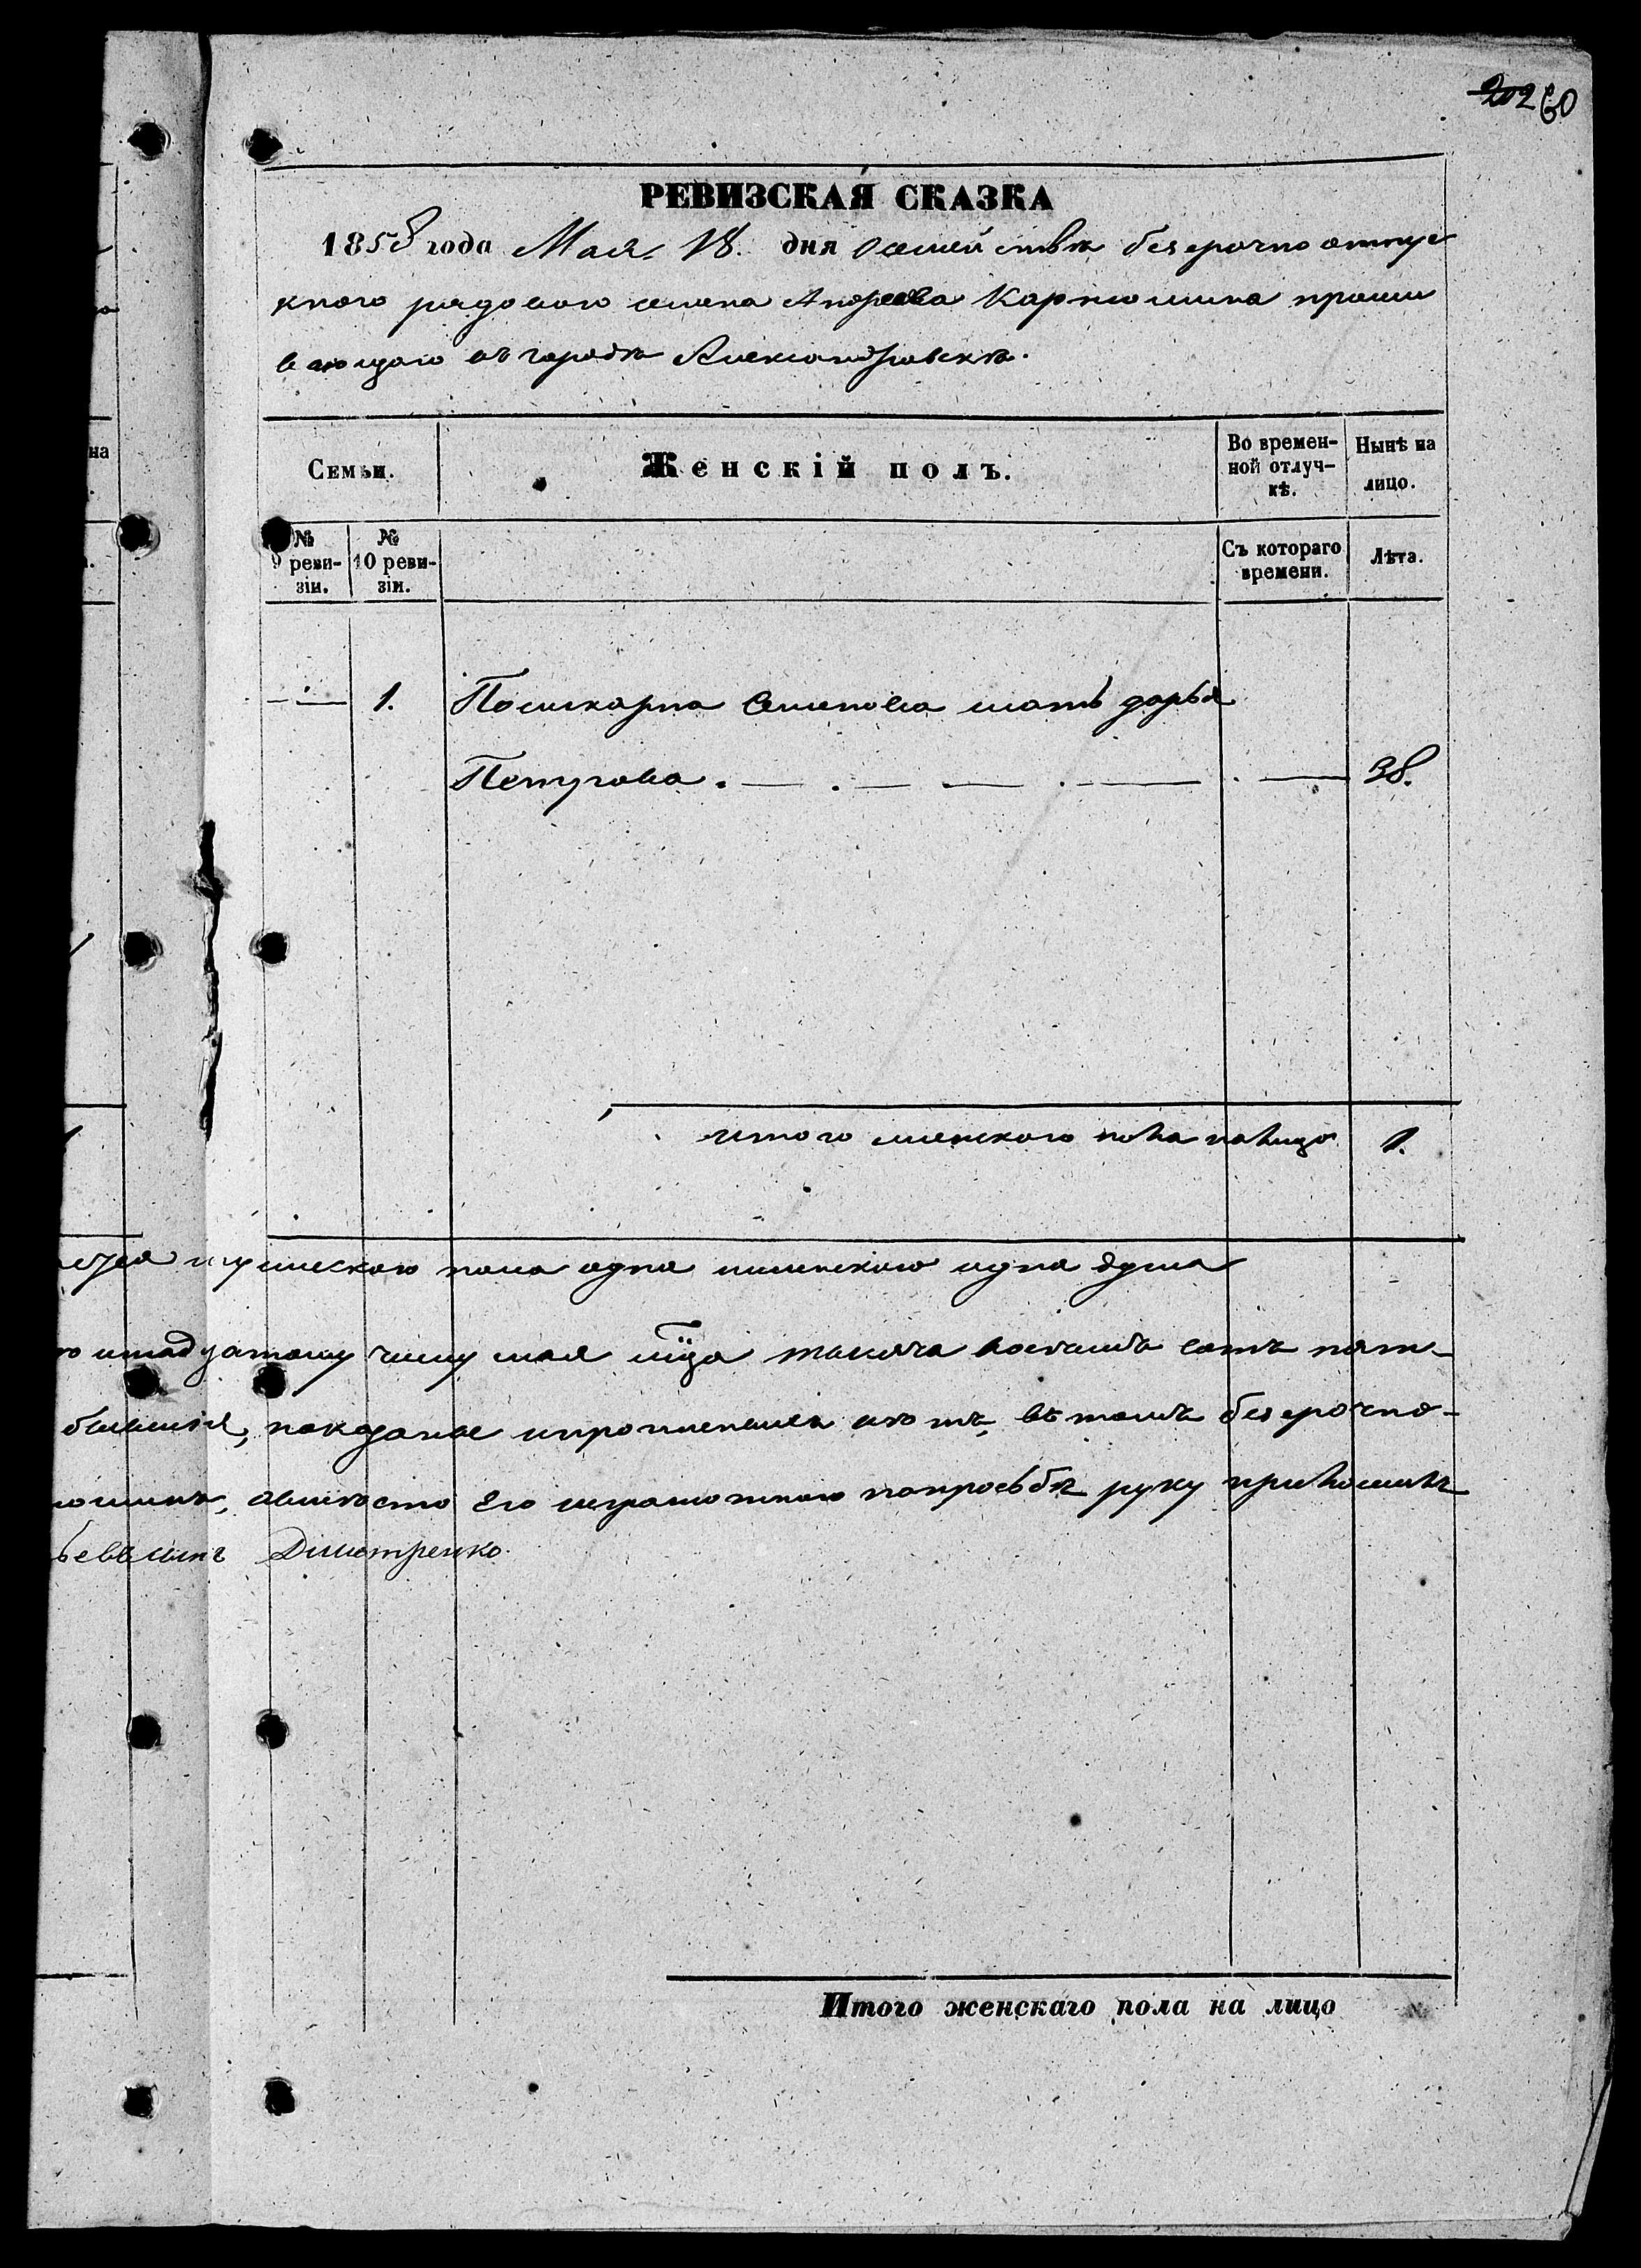 202 60
РЕВИЗСКАЯ СКАЗКА
1858 года Мая 18. дня о семействѣ безсрочно отпус
кного рядового семена Андреева Карпюшина прожи
вающаго въ городѣ Александровскѣ.
Семьи.
Женскій полъ.
Во времен-
ной отлуч-
кѣ.
Нынѣ на
лицо.
№
9 реви-
зіи.
№
10 реви-
зіи.
Съ котораго
времени.
Лѣта.
1. Поликарпа Семенова мать дарья
Петрова . — . — — . — . — 38.
итого женского пола налицо 1.
мужескаго пола одна женского одна душа
надцатому числу мая мца тысяча восемь сотъ пят-
поданое въ томъ безсрочно-
его неграмотного попрозьбѣ руку приложилъ
Дмитренко.
Итого женскаго пола на лицо
на